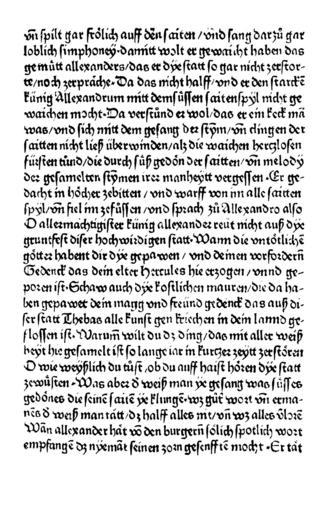 vñ spilt gar frölich auff den saiten / vnd sang darzů gar
loblich simphoney. damitt wolt er gewaicht haben das
gemůtt allexanders / das er dÿe statt so gar nicht zerstor-
te / noch zerpräche. Da das nicht halff / vnd er den starckē
künig Allexandrum mitt dem süssen saitenspÿl nicht ge
waichen mocht. Da verstůnd er wol / das er ein keck mā
was / vnd sich mitt dem gesang der stÿm / vñ clingen der
saitten nicht ließ überwinden / als die waichen herczlosen
fürsten tůnd / die durch süß gedön der saitten / vñ melody
der gesamelten stÿmen irer manheytt vergessen. Er ge-
dacht in höcher zebitten / vnd warff von im alle saitten
spÿl / vñ fiel im zefůssen / vnd sprach zů Allexandro also
O allermächtigister künig allexander reüt nicht auß dÿe
gruntfest diser hochwirdigen statt. Wann die vntötlichē
götter habent dir dÿe gepawen / vnd deinen vorfordern
Gedenck das dein elter Hercules hie erzogen / vnnd ge-
poren ist. Schaw auch dÿe kostlichen mauren / die da ha-
ben gepawet dein magg vnd freünd gedenck das auß di-
ser statt Thebas alle kunst gen kriechen in dein lannd ge-
flossen ist. Warum̃ wilt du dz ding / das mit aller weiß
heyt hie gesamelt ist so lange iar in kurtzer zeytt zerstören
O wie weyßlich du tůst / ob du auff haist hören dÿe statt
zewüsten. Was aber d̕ weiß man ÿe gesang was süsses
gedönes die seinē saitē ÿe klungē. wz gůt̕ wort vñ erma-
nūs d̕ weiß man tätt / dz halff alles nit / vñ wz alles v̕lorē
Wañ allexander hät vō den burgern sölich spotlich wort
empfangē dz nÿemāt seinen zorn gesenfftē mocht. Er tät